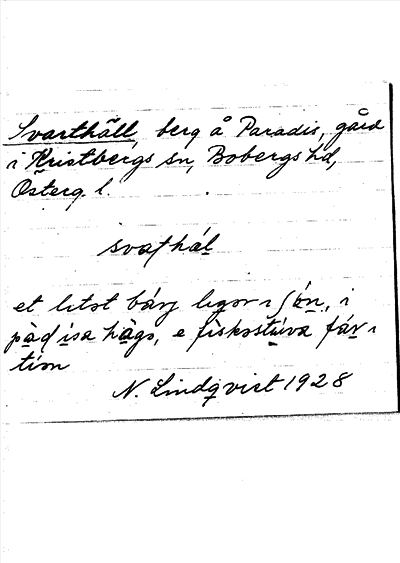 Svarthäll, berg å Paradis, gård
i Kristbergs sn, Bobergs hd,
Österg. l.
svathäl
et litət bärj ligər i ʃön, i
pàdisa hàgə, e fiskəstúva fár i
tíən
N. Lindqvist 1928